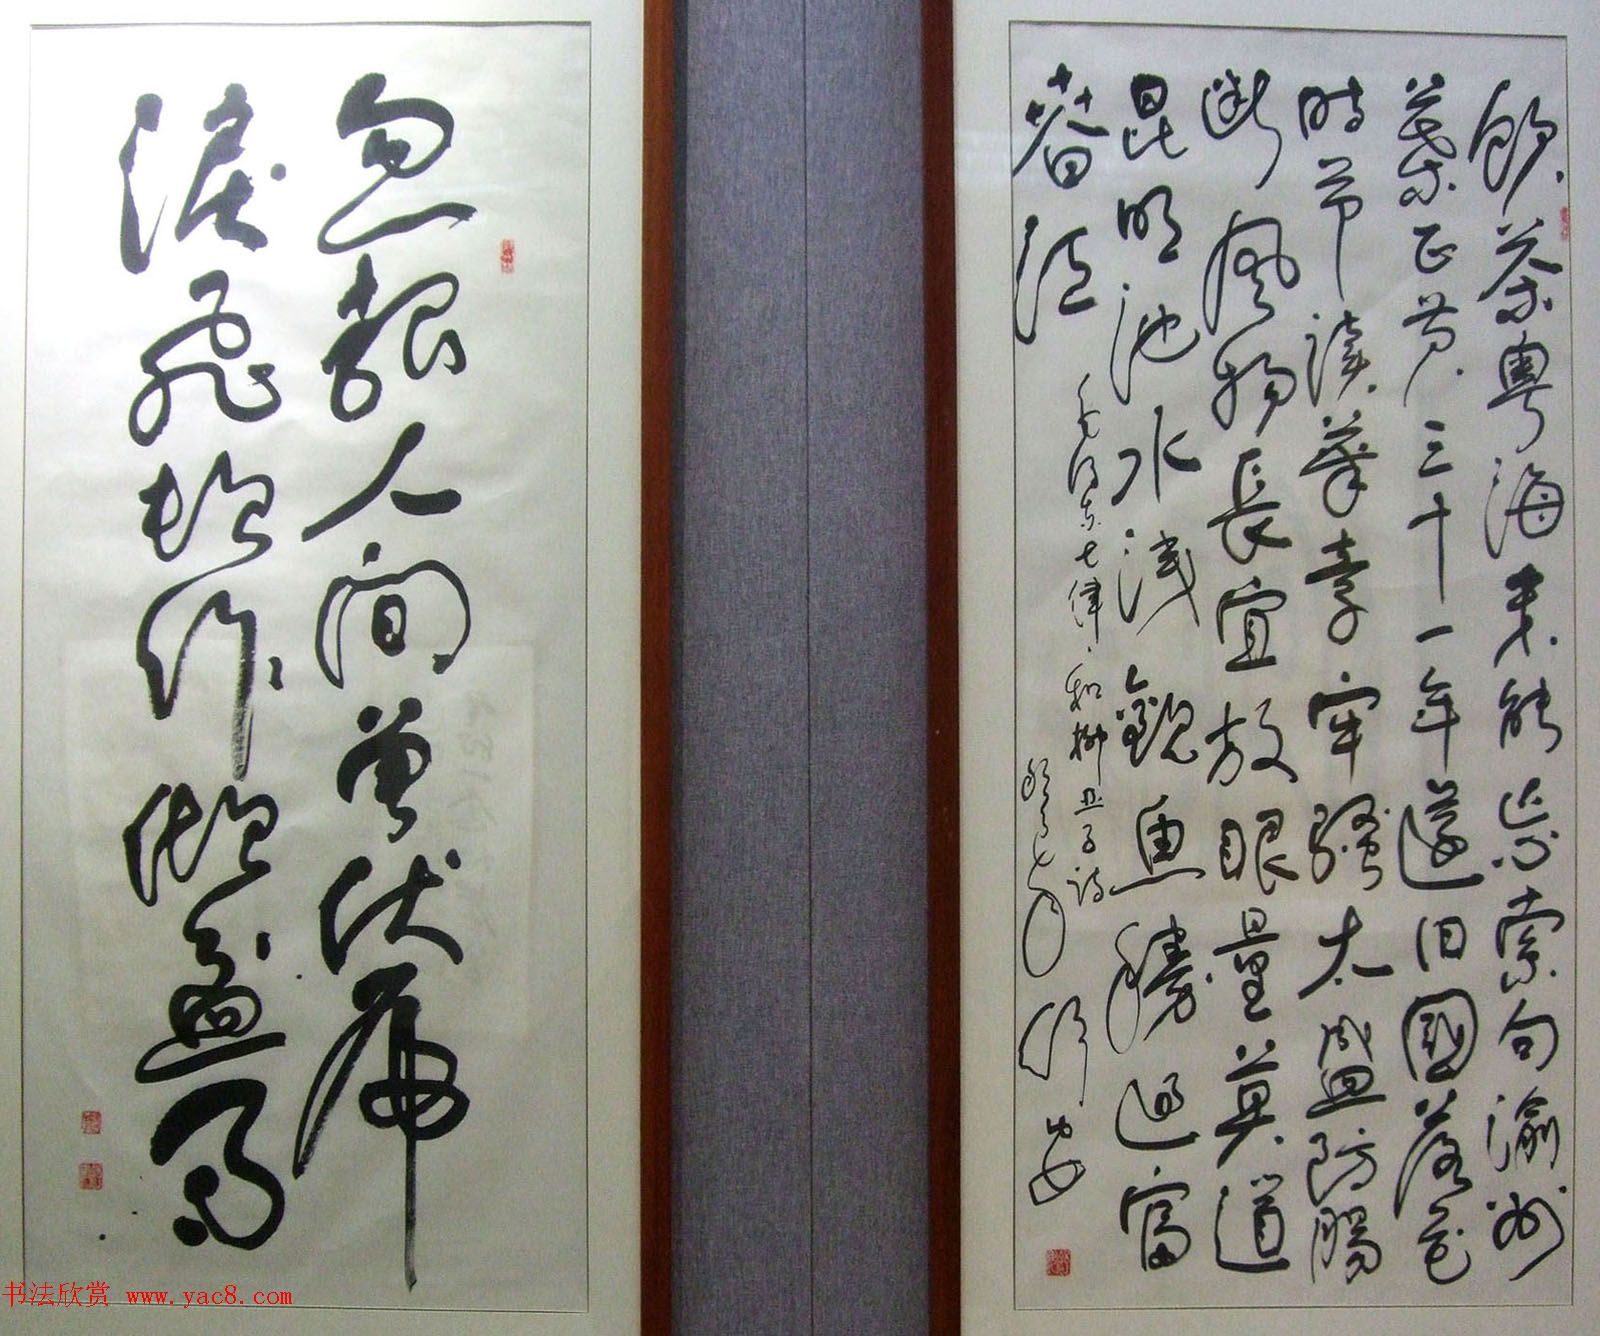 飲茶粵海未能忘索句渝州
葉正黃三十一年還旧國落花
時節讀華章牢騷太盛防腸
斷風物長宜放眼量莫道
昆明池水淺觀魚勝過富
春江
毛澤東七律和柳亞子詩
忽報人間曾伏虎
淚飛頓作傾盆雨
书法欣赏 www.yac8.com